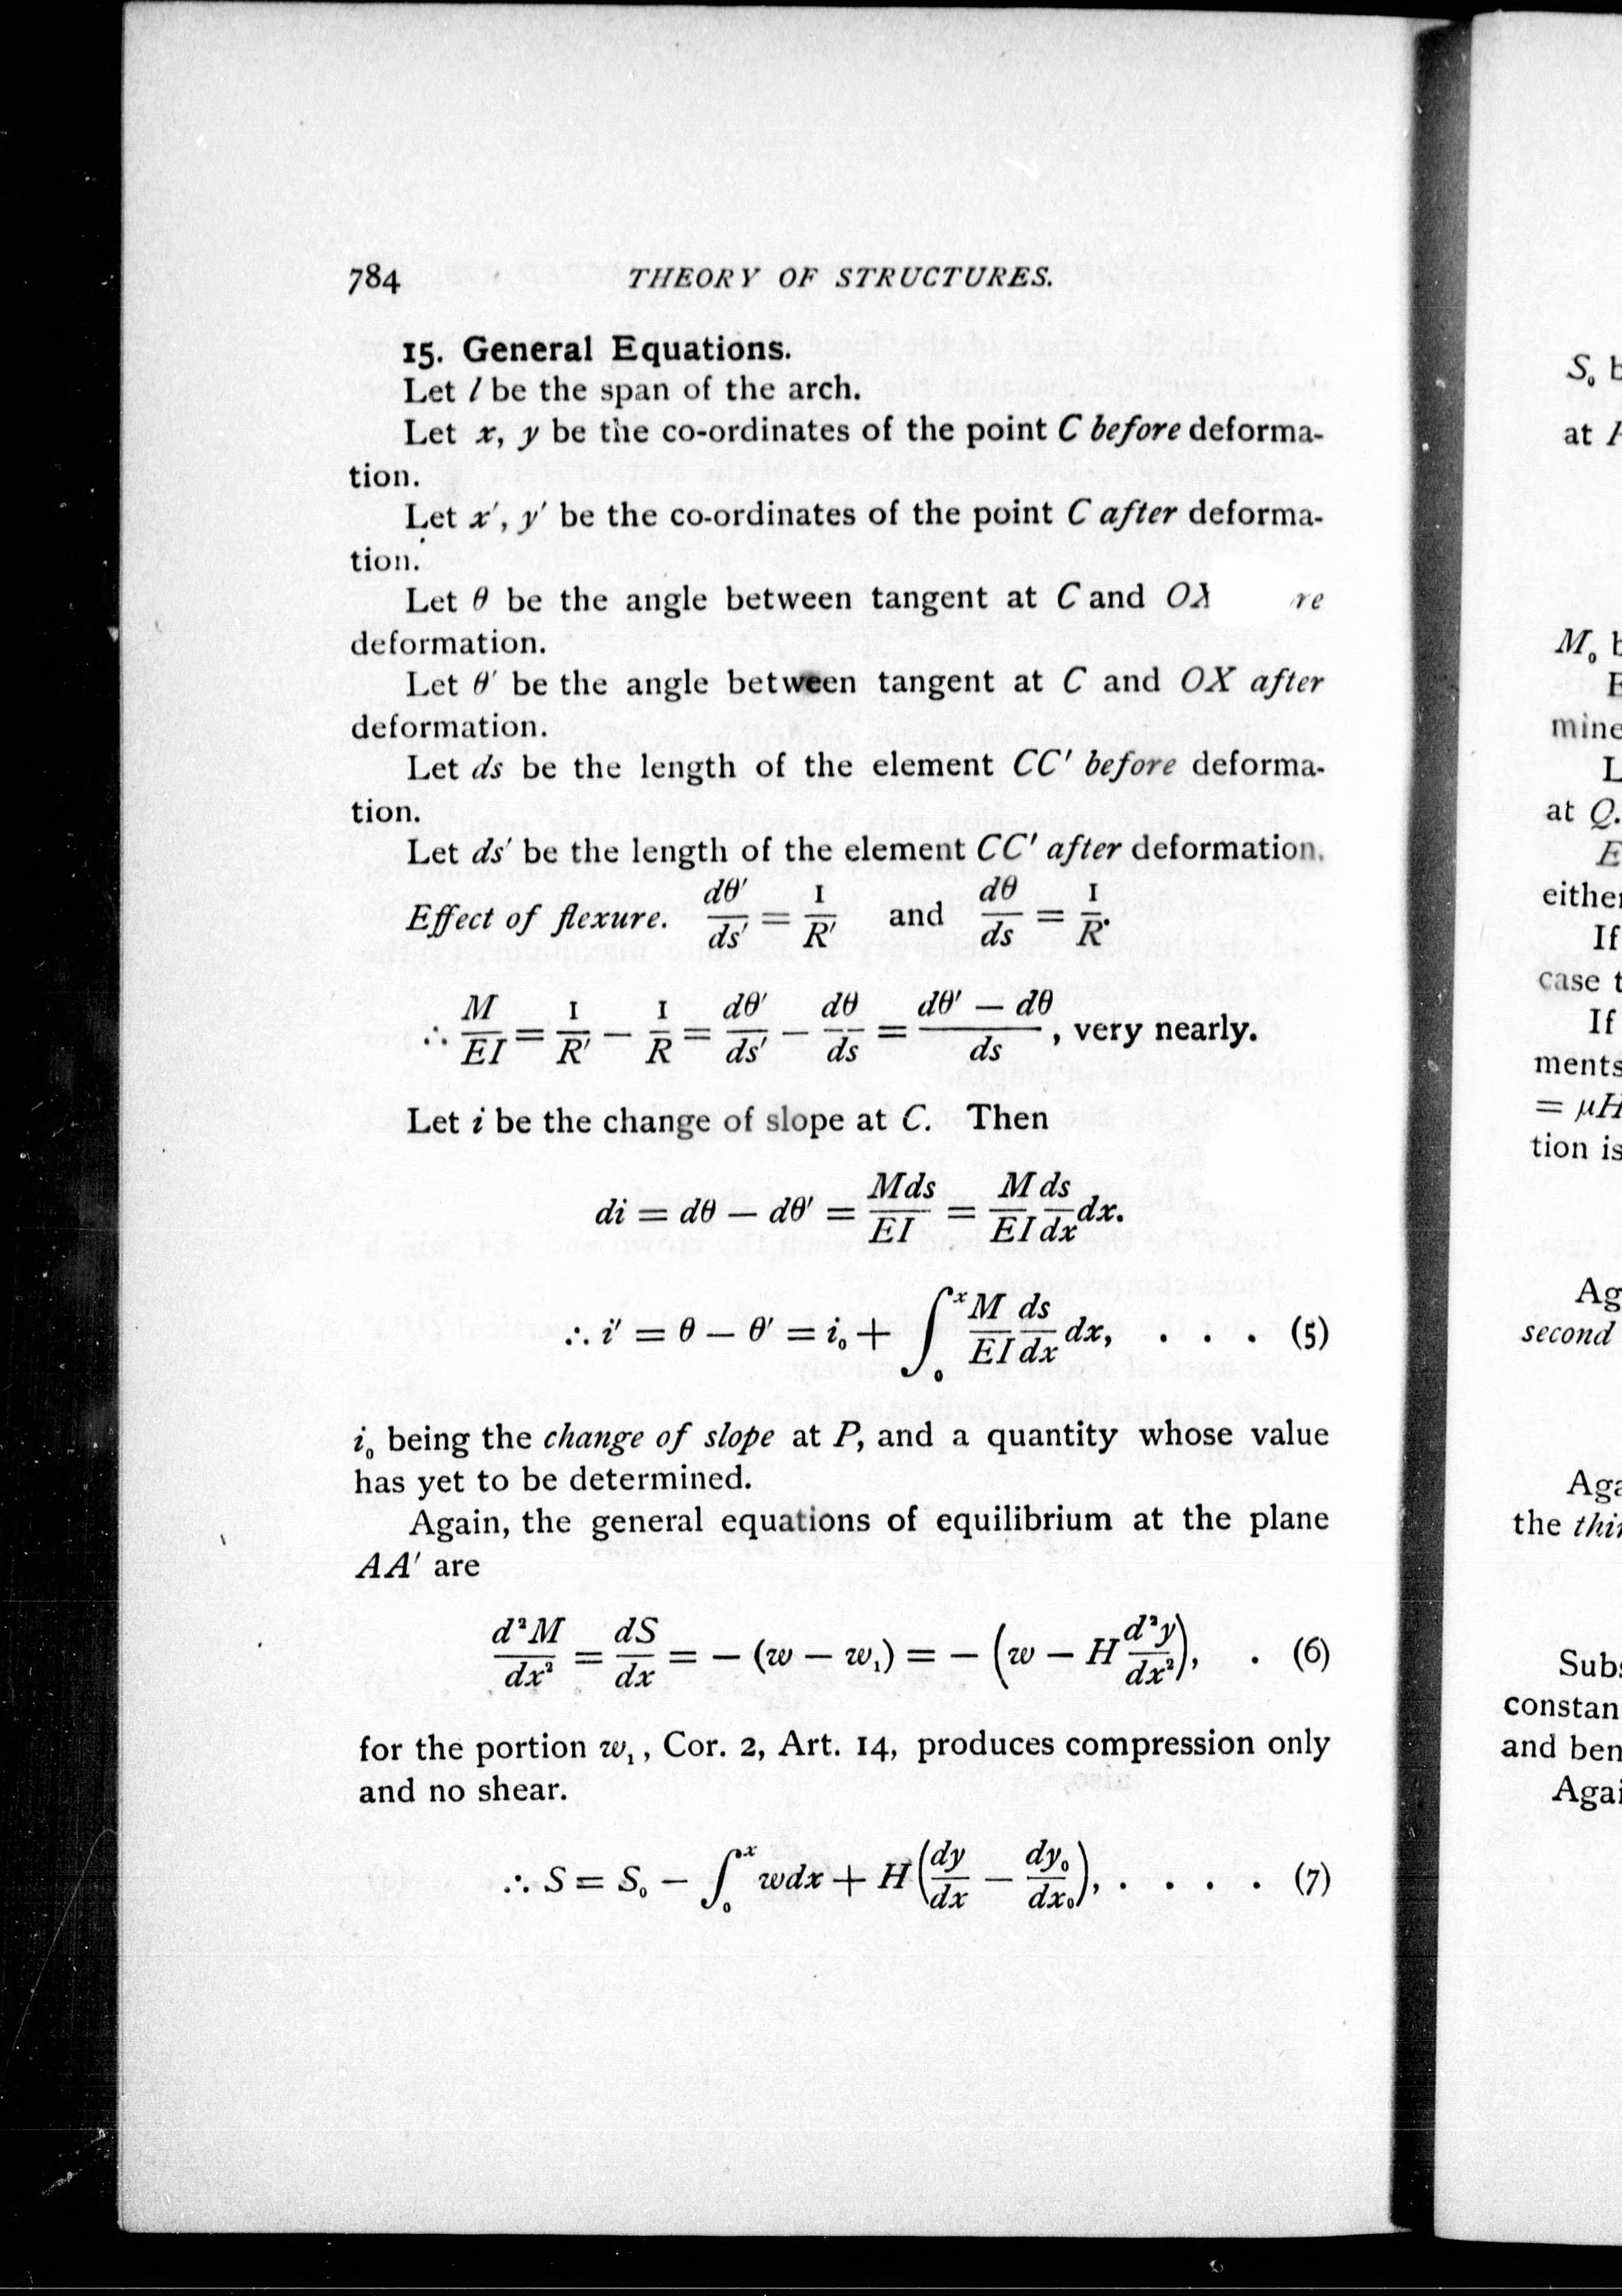 784 THEORY OF STRUCTURES.
15. General Equations.
Let l be the span of the arch.
Let x, y be the co-ordinates of the point C before deforma-
tion.
Let x′, y′ be the co-ordinates of the point C after deforma-
tion.
Let θ be the angle between tangent at C and
deformation.
Let θ′ be the angle between tangent at C and OX after
deformation.
Let ds be the length of the element CC′ before deforma-
tion.
Let ds′ be the length of the element CC′ after deformation.
Effect of flexure. dθ′/ds′ = 1/R′ and dθ/ds = 1/R.
∴ M/EI = 1/R′ − 1/R = dθ′/ds′ − dθ/ds = (dθ′ − dθ)/ds, very nearly.
Let i be the change of slope at C. Then
di = dθ − dθ′ = Mds/EI = M/EI ds/dx dx.
∴ i′ = θ − θ′ = i₀ + ∫₀ˣ M/EI ds/dx dx, . . . (5)
i₀ being the change of slope at P, and a quantity whose value
has yet to be determined.
Again, the general equations of equilibrium at the plane
AA′ are
d²M/dx² = dS/dx = − (w − w₁) = − (w − H d²y/dx²), . (6)
for the portion w₁, Cor. 2, Art. 14, produces compression only
and no shear.
∴ S = S₀ − ∫₀ˣ wdx + H(dy/dx − dy₀/dx₀), . . . . (7)
S₀ b
at
M₀ b
E
mine
L
at Q.
E
either
If
case t
If
ments
= μH
tion is
Ag
second
Aga
the thir
Subs
constan
and ben
Agai